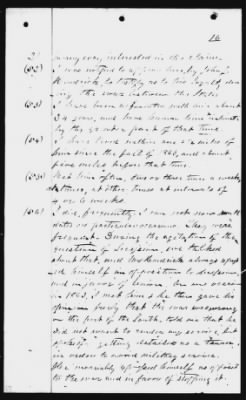 16
2 in any way interested in the claim.
(52) I was notified to appear here, by John J.
Kendrick, to testify as to his loyalty dur-
ing the war between the States.
(53) I have been acquainted with him about
34 years, and have known him intimately
by the greater part of that time.
(54) I have lived within one &
miles of
him since the fall of 1860, and about
four miles before that time.
(55) Met him often, two or three times a week
at times, at other times at intervals of
4 or 6 weeks.
(56) I did, frequently; I can not now
dates or particular occasions. They were
frequent. During the agitation of the
question of Secession, we talked
about that, and Mr Kendrick always express-
ed himself in opposition to disunion,
and in favor of Union. On one occasion
in 1863, I met him & he then gave his
opinion freely that the war was wrong
on the part of the South, told me that he
did not want to render any service, but
spoke of getting detailed as a tanner,
in order to avoid military service.
He invariably expressed himself as opposed
to the war and in favor of stopping it.